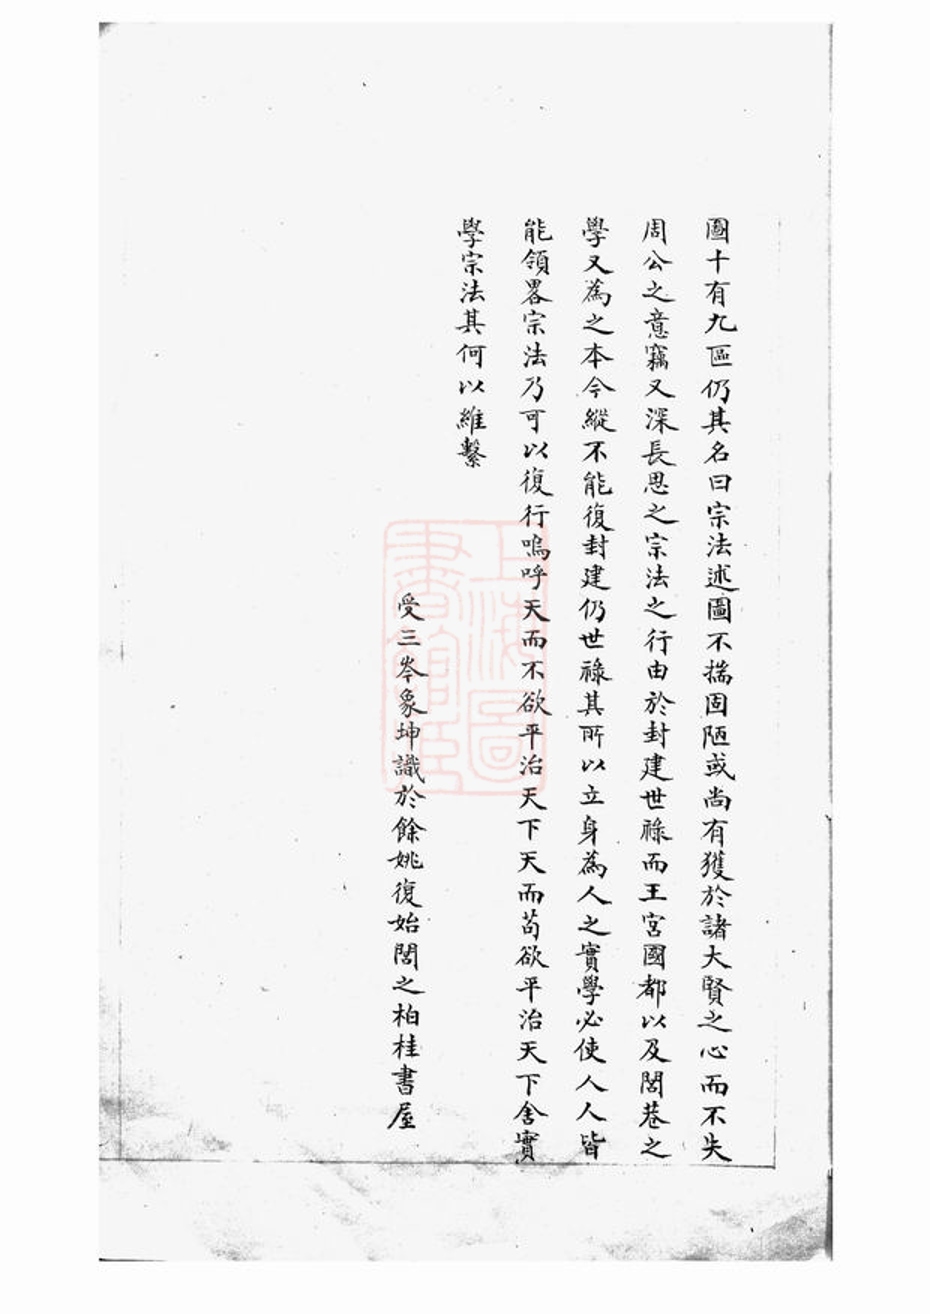 圖十有九區仍其名曰宗法述圖不揣固陋或尚有獲於諸大賢之心而不失
周公之意竊又深長思之宗法之行由於封建世祿而王宮國都以及閭巷之
學又為之本今縱不能復封建仍世祿其所以立身為人之實學必使人人皆
能領畧宗法乃可以復行嗚呼天而不欲平治天下天而苟欲平治天下舍實
學宗法其何以維繫
受三岑象坤識於餘姚復始閣之柏桂書屋
上海圖書館藏